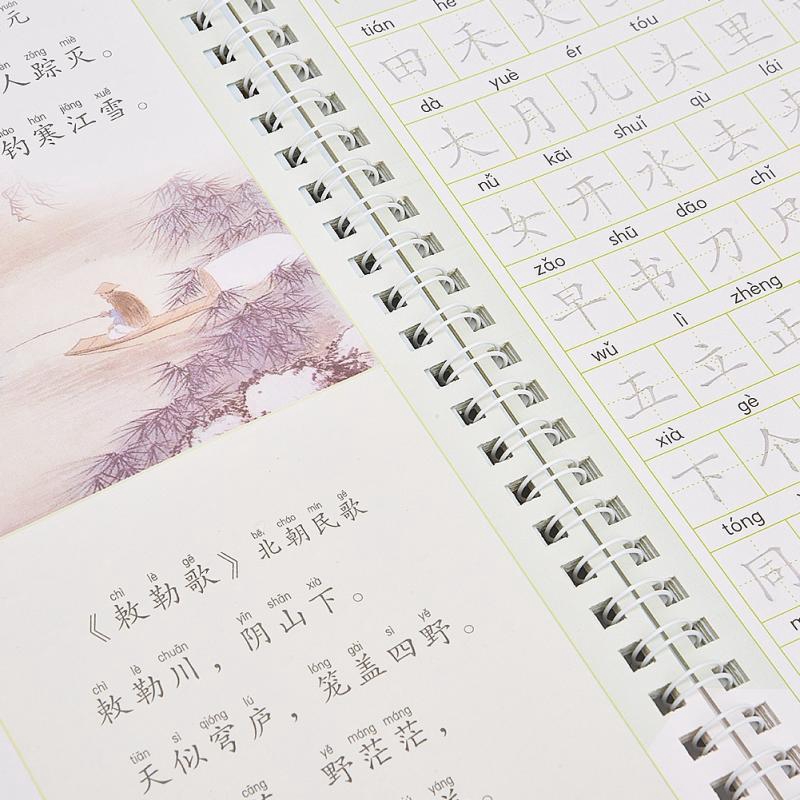 yuán
元
zōng miè
人踪灭。
hán jiāng xuě
钓寒江雪。
chì lè gē běi cháo mín gē
《敕勒歌》北朝民歌
chì lè chuān yīn shān xià
敕勒川，阴山下。
tiān sì qióng lú lóng gài sì yě
天似穹庐，笼盖四野。
cāng yě máng máng
野茫茫，
yáng
tián hé
田禾火
dà yuè ér tóu
大月儿头里
nǚ kāi shuǐ qù lái
女开水去来
zǎo shū dāo chǐ
早书刀尺
wǔ lì zhèng
五立正
xià gè
下个
tóng
同